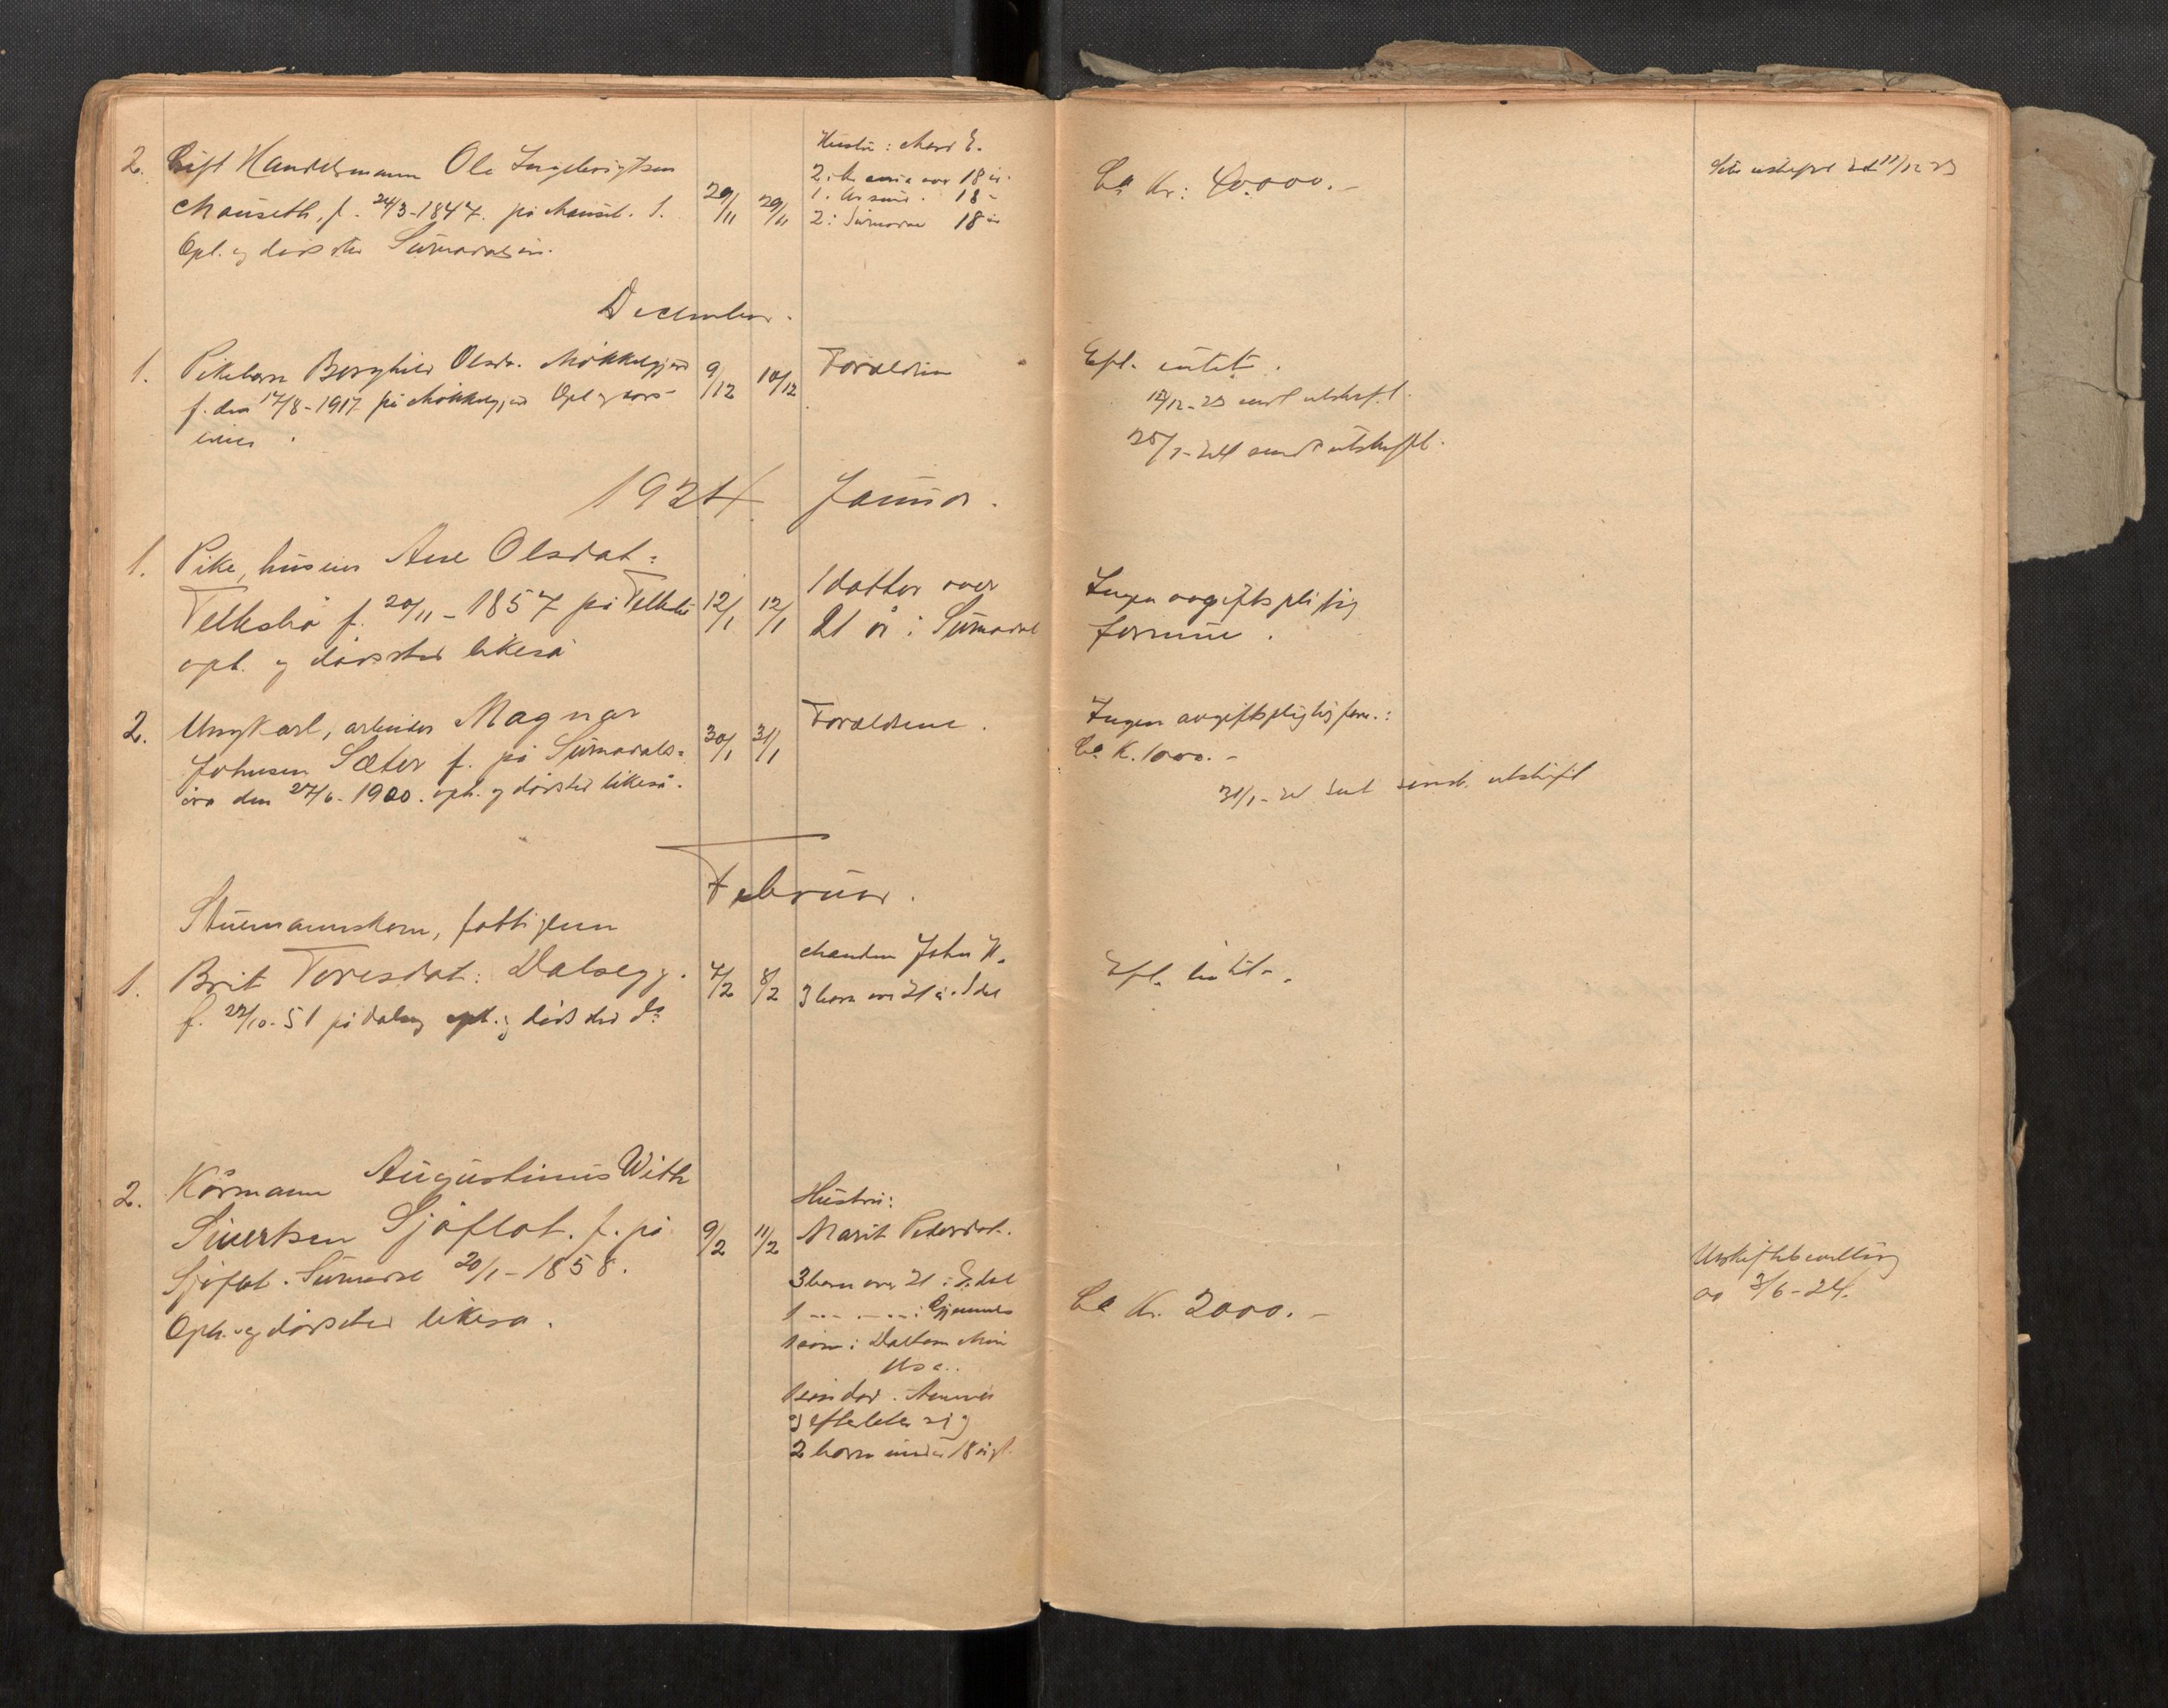 2. Gift Handelsmann Ole Ingebrigtsen
Mauseth, f. 24/3-1847. på Mauset. S.
Opl. og dødssted Surnadalsøra.
29/11 29/11
Hustru: Marit E.
2 i over 18 år.
1. 18 -
2 i Surnadal 18 år
Ca Kr: 40.000.-
utskrift 11/12 23
December.
1. Pikebarn Borghild Olsdr. Mökkelgjerd
f. den 17/8-1917 på Mökkelgjerd Opl og døds-
9/12 10/12
Foreldrene
Efl. intet.
12/12-23 sendt utskrift.
25/1-24 sendt utskrift.
1924 Januar.
1. Pike, huseier Ane Olsdat:
Telksbø f. 20/11-1857 på Telksbø
oph. og dødssted likeså
12/1 12/1
1 datter over
21 år i Surnadal
Ingen avgiftspligtig
formue.
2. Ungkarl, arbeider Magnar
Johnsen Sæter f. på Surnadals=
øra den 27/6-1900. oph. og dødsted likeså.
30/1 31/1
Foreldrene.
Ingen avgiftspligtig form.:
Ca K. 1000.-
31/1-24 sendt utskrift
Februar.
Stuemannskone, fattiglem
1. Brit Toresdat: Dalsegg.
f. 22/10-51 på Dalseg oph. og dødssted do
7/2 8/2
Manden John H.
3 barn over 21 år. S.dal
Efl. intet.
2. Kårmann Augustinus With
Sivertsen Sjøflot. f. på
Sjøflot. Surnadal 20/1-1858.
Oph. og dødssted likeså.
9/2 11/2
Hustru:
Marit Pedersdat.
3 barn over 21 i S.dal
1 -- - -- i Gjemnes
1 sønn i Daltom Min
Usa.
1 sønn død. i Amerika
og efterlater sig
2 barn under 18 år
Ca Kr. 2000.-
Uskiftebevilling
av 3/6-24.